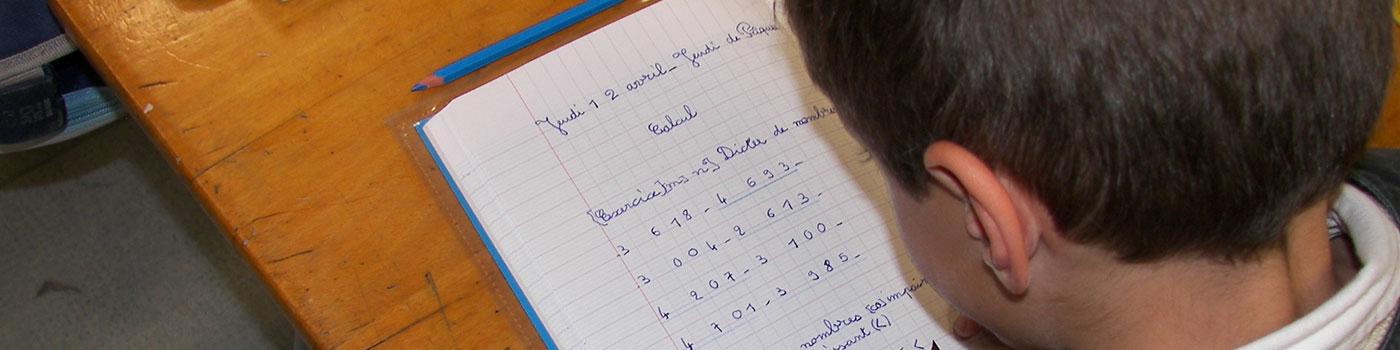 Jeudi 12 avril_Jeudi de Pâques
Calcul
Dictée de nombres
3 618 - 4 693 -
3 004 - 2 613 -
4 207 - 3 100 -
4 701 - 3 985 -
nombres impair
(<)
<